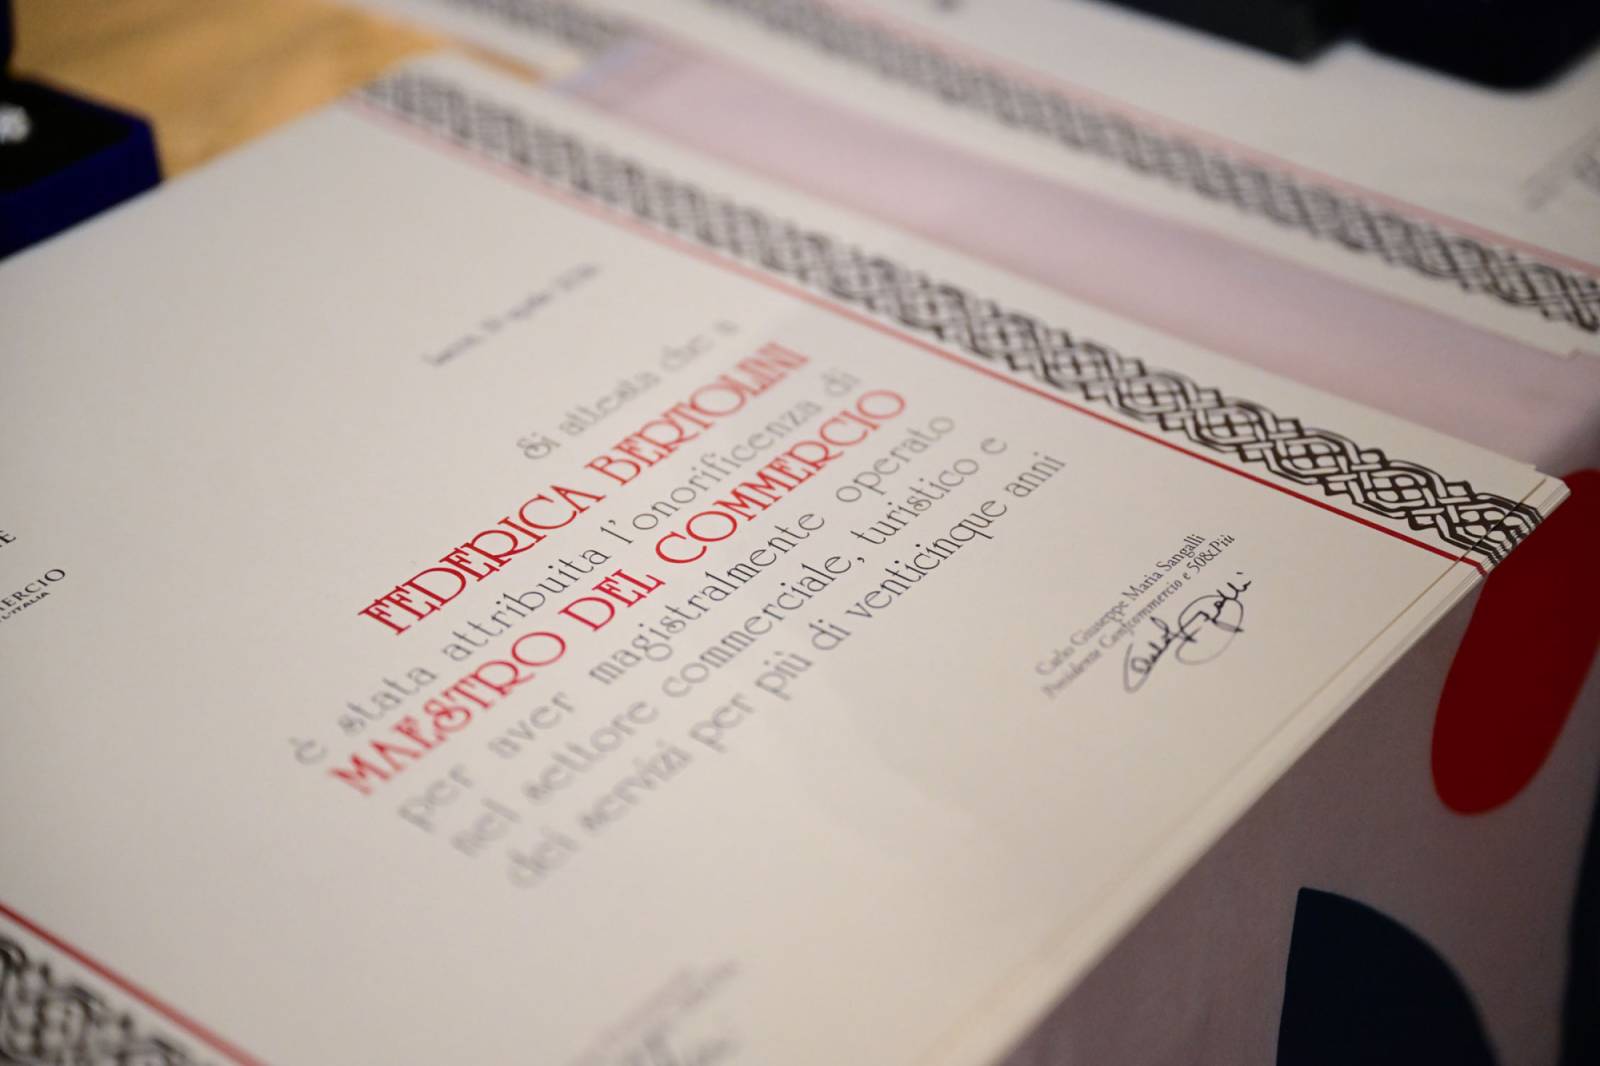 ERCIO
D'ITALIA
Si attesta che a
FEDERICA BERTOLINI
è stata attribuita l'onorificenza di
MAESTRO DEL COMMERCIO
per aver magistralmente operato
nel settore commerciale, turistico e
dei servizi per più di venticinque anni
Carlo Giuseppe Maria Sangalli
Presidente Confcommercio e 50&Più